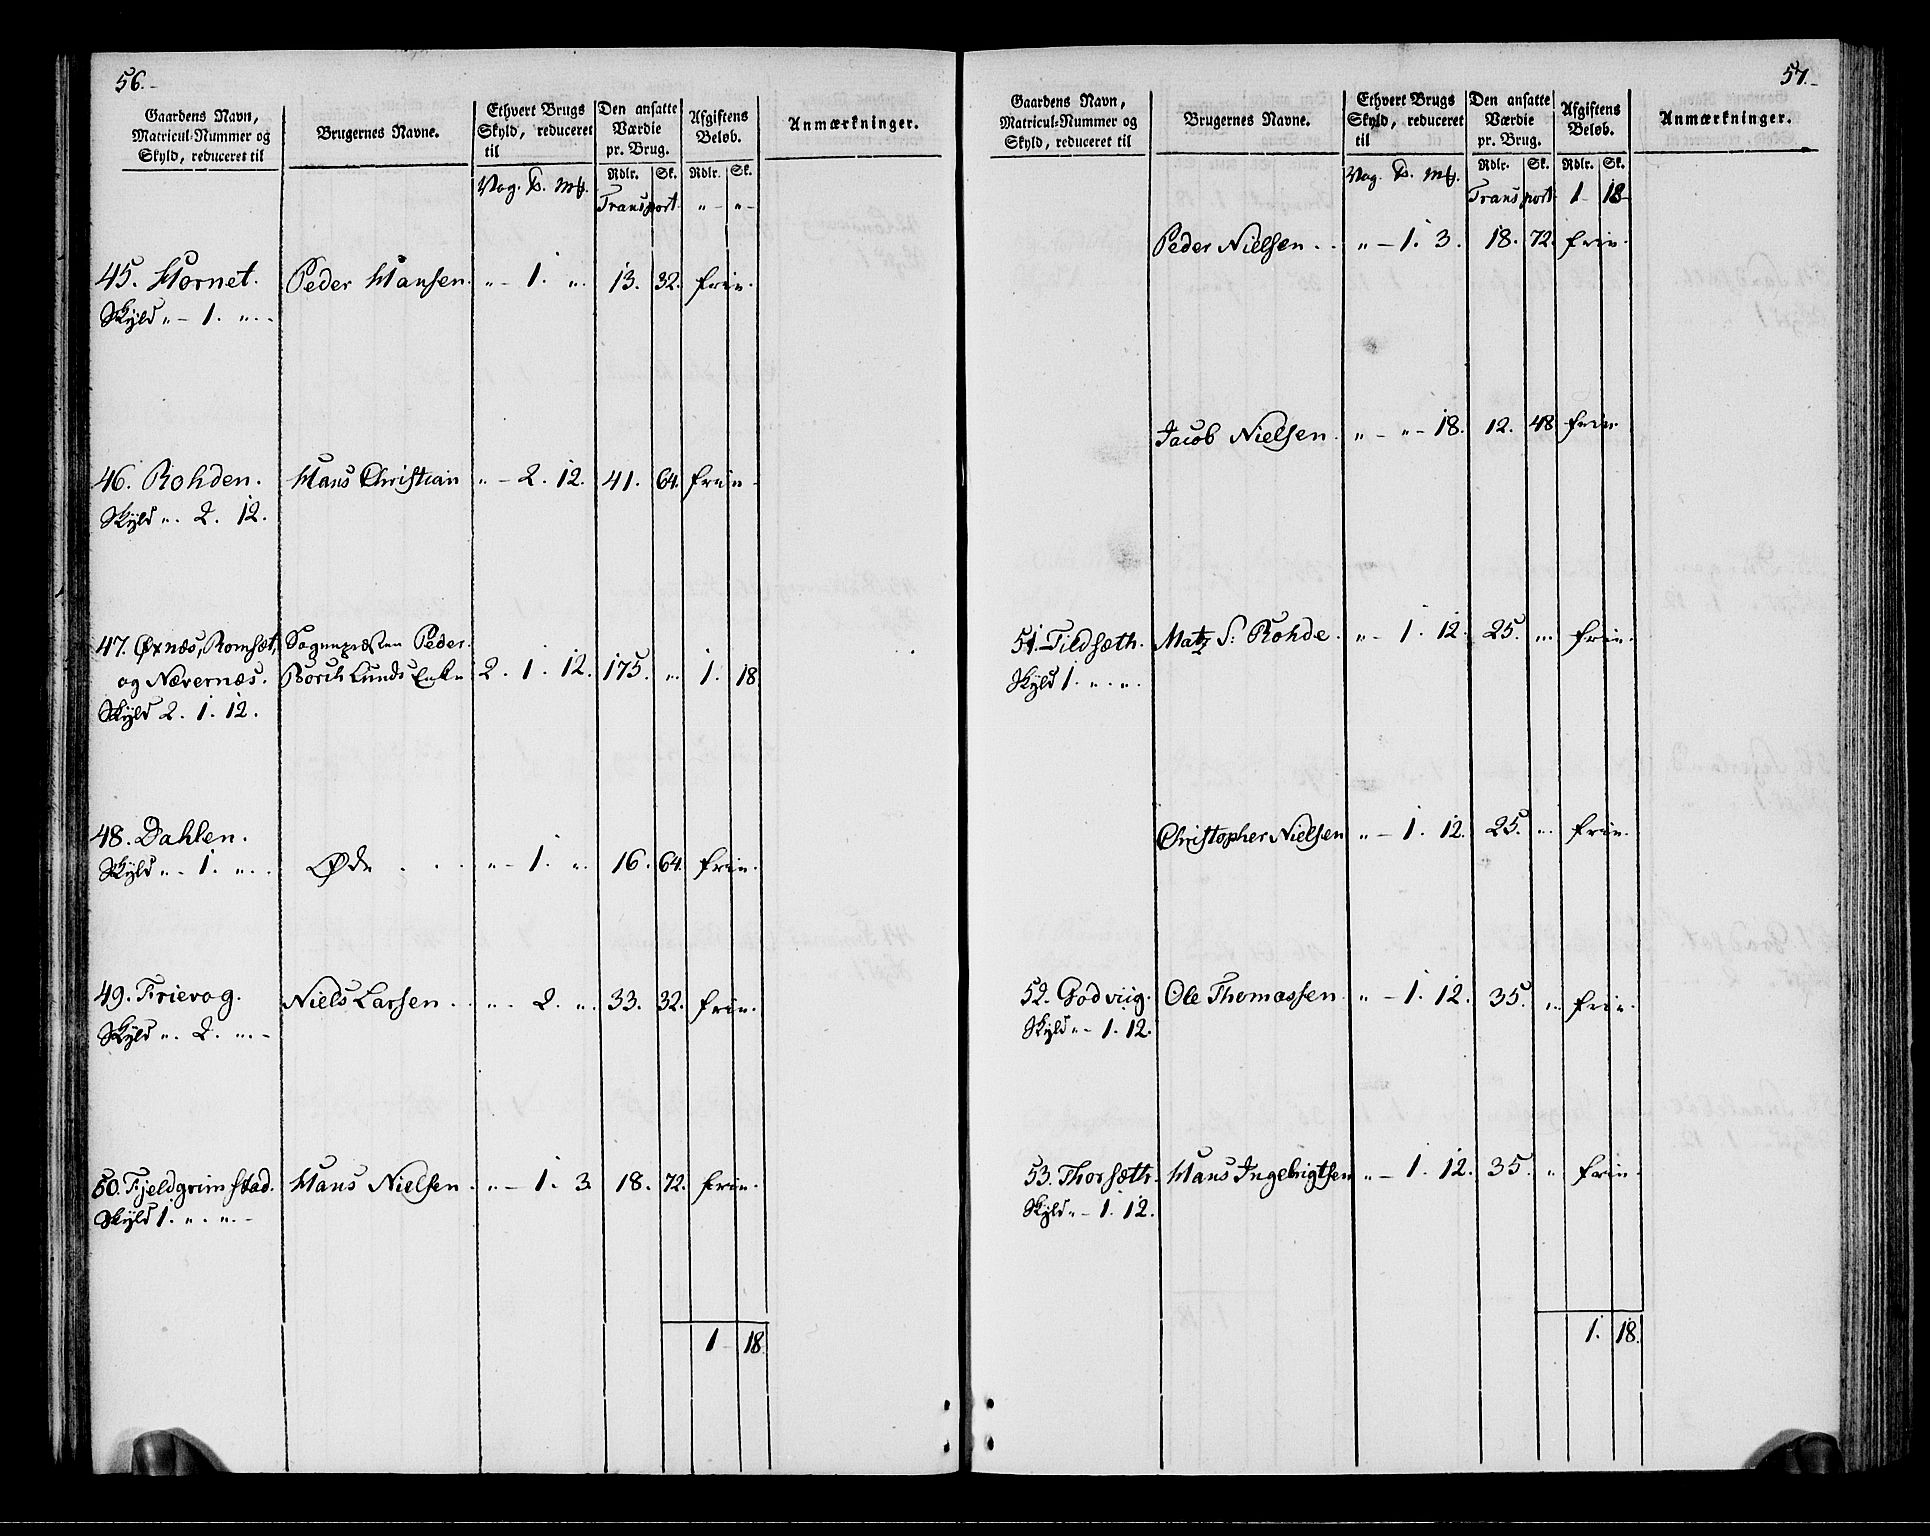 56.
Gaardens Navn, Matricul-Nummer og Skyld, reduceret til | Brugernes Navne. | Ethvert Brugs Skyld, reduceret til | Den ansatte Værdie pr. Brug. | Afgiftens Beløb. | Anmærkninger.
Rdlr. Sk. Rdlr. Sk.
Vog. ℔. Mk.
Transport " - " -
45. Hornet. Peder Hansen. " - 1. ". 13. 32. frie.
Skyld " - 1. ". -
46. Rohden. Hans Christian " - 2. 12. 41. 64. frie.
Skyld ". 2. 12.
47. Øxnæs, Romsæt, Sognepræsten Peder
og Nævernæs. Borch Lunds Enke 2. 1. 12. 175. " 1. 18.
Skyld 2. 1. 12.
48. Dahlen.
Skyld " - 1. ". . Øde . . . " - 1. ". 16. 64. frie.
49. Frievog. Niels Larsen. . ". 2. ". 33. 32. frie.
Skyld ". 2. ". -
50. Fjeldgrimstad. Hans Nielsen. " - 1. 3. 18. 72. frie.
Skyld 1. ". ". -
1 18.
57.
Gaardens Navn, Matricul-Nummer og Skyld, reduceret til | Brugernes Navne. | Ethvert Brugs Skyld, reduceret til | Den ansatte Værdie pr. Brug. | Afgiftens Beløb. | Anmærkninger.
Rdlr. Sk. Rdlr. Sk.
Vog. ℔. Mk.
Transport 1 - 18
Peder Nielsen . . " - 1. 3. 18. 72. frie.
Jacob Nielsen. " - " - 18. 12. 48 frie.
51. Tildsæth. Matz S: Rohde. " - 1. 12. 25. " frie.
Skyld 1. ". ".
Christopher Nielsen " - 1. 12. 25. " frie.
52. Godviig. Ole Thomassen. " - 1. 12. 35. " frie.
Skyld " - 1. 12.
53. Thorsæth. Hans Ingebrigtsen " - 1. 12. 35. " frie.
Skyld " - 1. 12.
1. 18.